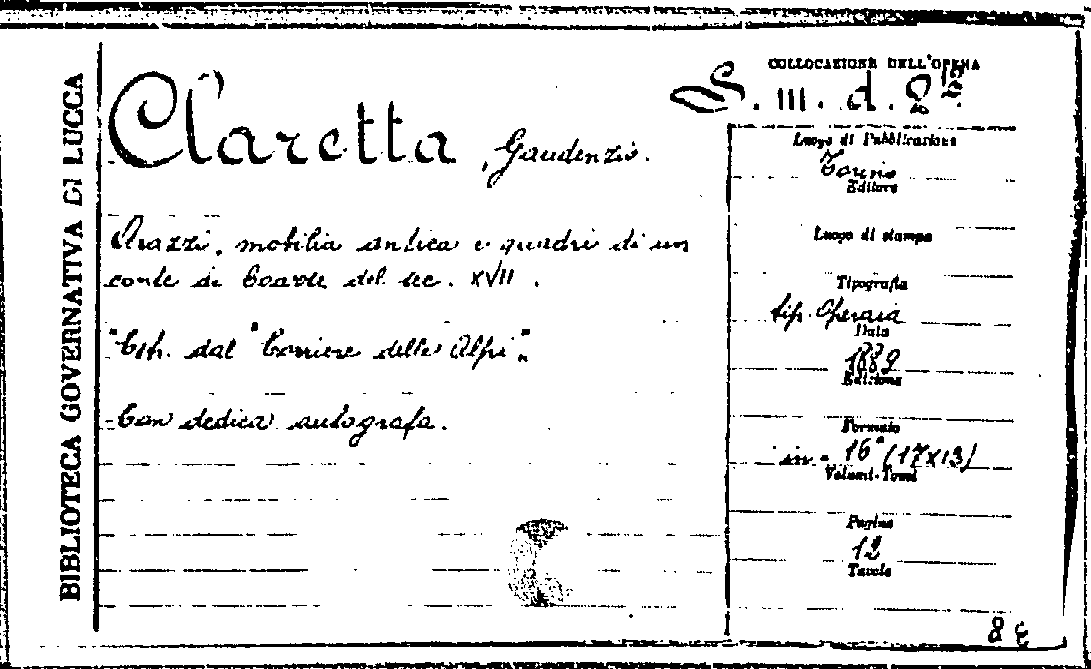 BIBLIOTECA GOVERNATIVA DI LUCCA
COLLOCAZIONE DELL'OPERA
S. III. d. 8
Claretta, Gaudenzio.
Arazzi, mobilia antica e quadri di un
conte di del sec. XVII.
"Estr. dal "Corriere delle Alpi".
Con dedica autografa.
Luogo di Pubblicazione
Torino
Editore
Luogo di stampa
Tipografia
tip. Operaia
Data
1889
Edizione
Formato
in-16° (17x13)
Volumi-Tomi
Pagine
12
Tavole